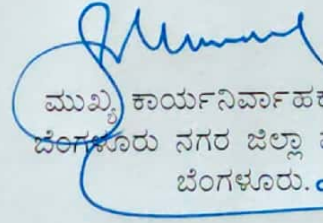 ಮುಖ್ಯ ಕಾರ್ಯನಿರ್ವಾಹಕ
ಬೆಂಗಳೂರು ನಗರ ಜಿಲ್ಲಾ
ಬೆಂಗಳೂರು.